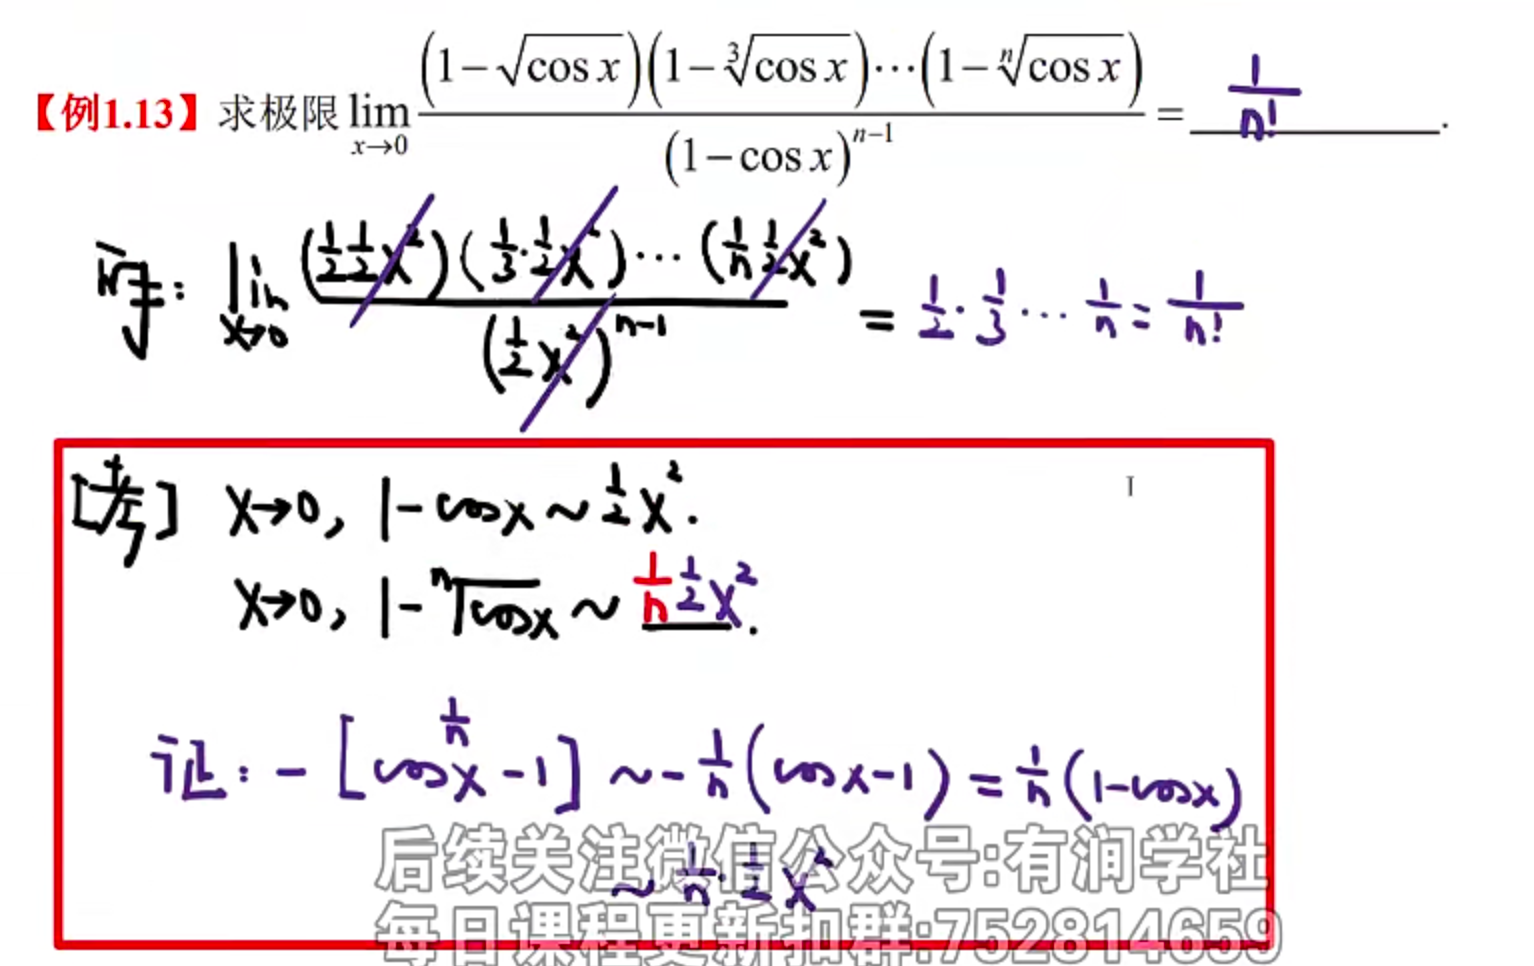 【例1.13】求极限 lim x→0 (1−√cos x)(1−∛cos x)⋯(1−ⁿ√cos x) / (1−cos x)ⁿ⁻¹ = 1/n! .
原式: lim x→0 (1/2 1/2 x²)(1/3·1/2 x²)⋯(1/n 1/2 x²) / (1/2 x²)ⁿ⁻¹ = 1/2·1/3⋯1/n = 1/n!
[考] x→0, 1−cosx ~ 1/2 x².
x→0, 1−ⁿ√cosx ~ 1/n 1/2 x².
证: −[cos^(1/n) x −1] ~ −1/n (cosx−1) = 1/n (1−cosx)
~ 1/n·1/2 x²
后续关注微信公众号:有润学社
每日课程更新扣群:752814659